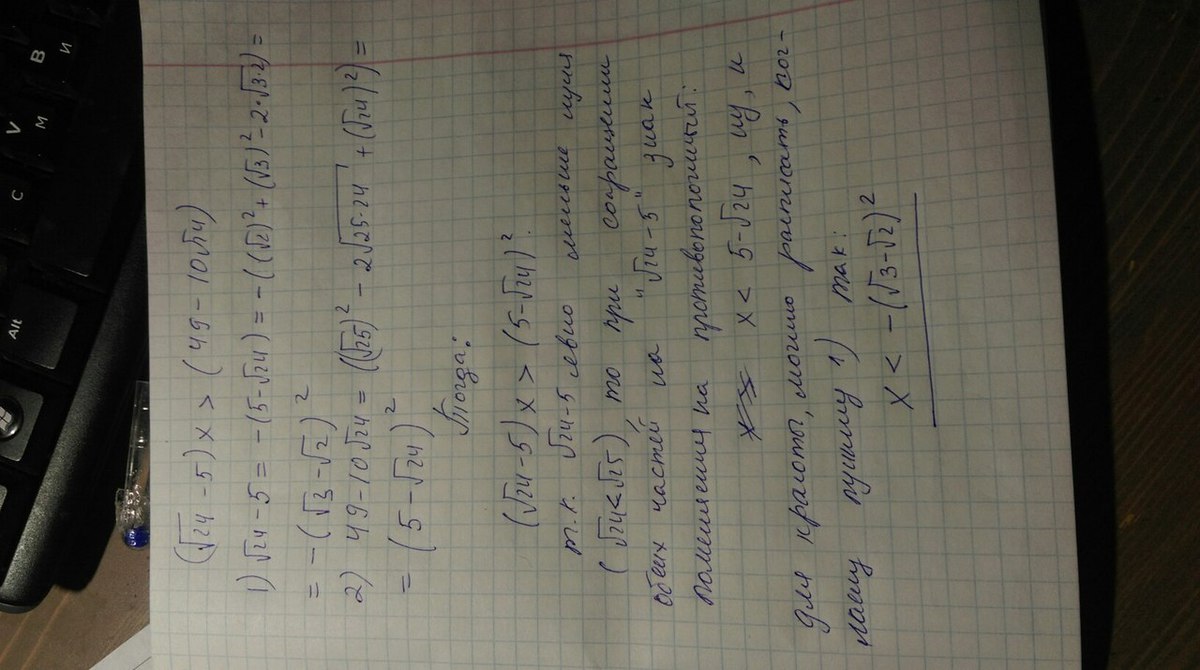 (√24 - 5) x > (49 - 10√24)
1) √24 - 5 = - (5 - √24) = - ((√2)² + (√3)² - 2·√3·2) =
= - (√3 - √2)²
2) 49 - 10√24 = ((√25)² - 2√25·24 + (√24)²) =
= (5 - √24)²
Тогда:
(√24 - 5) x > (5 - √24)².
т.к. √24 - 5 явно меньше нуля
(√24 < √25), то при сокращении
обеих частей на "√24 - 5" знак
поменяется на противоположный:
x < 5 - √24, ну, и
для красоты, можно расписать, сог-
лашу пункту 1) так:
x < - (√3 - √2)²
Alt
C
V
M
B
И